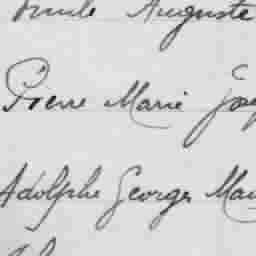 Emile Auguste
Pierre Marie Jos
Adolphe Georges Mau